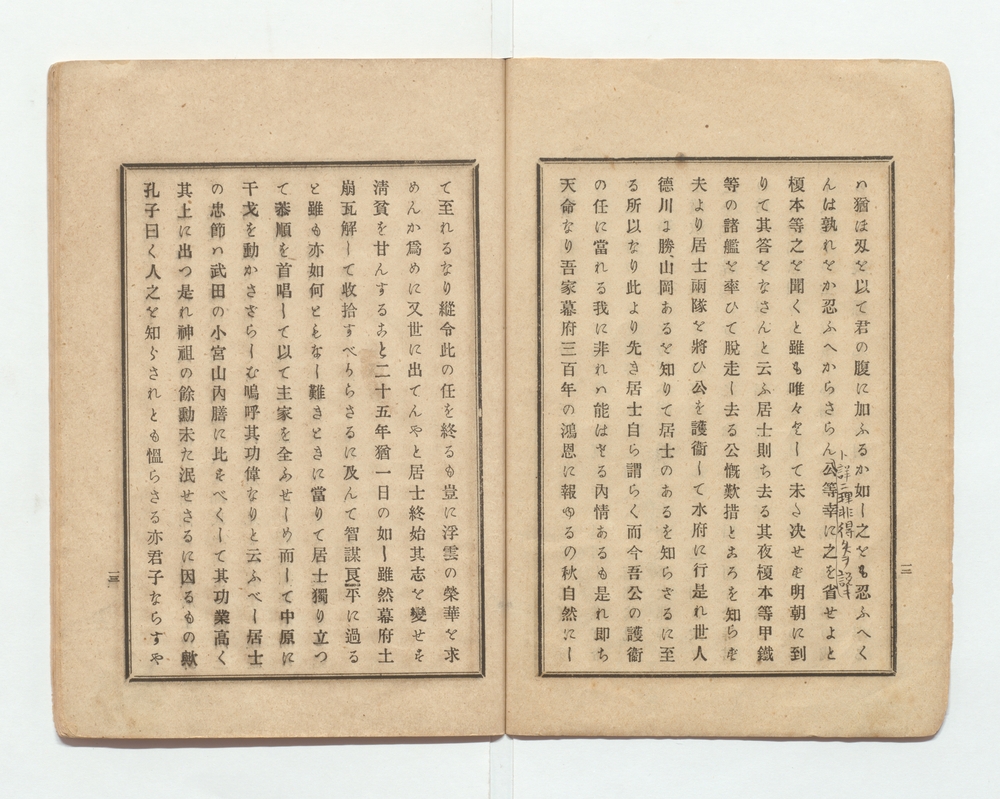 ハ猶ほ刄を以て君の腹に加ふるか如し之をも忍ふへく
んは孰れをか忍ふへからさらん公等幸に之を省せよと
ト詳ニ理非得失ヲ説キ
榎本等之を聞くと雖も唯々をして未た决せず明朝に到
りて其答をなさんと云ふ居士則ち去る其夜榎本等甲鐵
等の諸艦を率ひて脱走し去る公慨歎措ところを知らず
夫より居士兩隊を將ひ公を護衞して水府に行是れ世人
德川に勝、山岡あるを知りて居士のあるを知らさるに至
る所以なり此より先き居士自ら謂らく而今吾公の護衞
の任に當れる我に非れハ能はざる内情あるも是れ即ち
天命なり吾家幕府三百年の鴻恩に報ゆるの秋自然にし
十二
て至れるなり縱令此の任を終るも豈に浮雲の榮華を求
めんか爲めに又世に出てんやと居士終始其志を變せを
清貧を甘んするおと二十五年猶一日の如し雖然幕府土
崩瓦解して收拾すべからさるに及んて智謀良平に過る
と雖も亦如何ともなし難きときに當りて居士獨り立つ
て恭順を首唱して以て主家を全ふせしめ而して中原に
干戈を動かさざらしむ嗚呼其功偉なりと云ふべし居士
の忠節ハ武田の小宮山内膳に比すべくして其功業高く
其上に出つ是れ神祖の餘勳未た泯せさるに因るもの歟
孔子曰く人之を知らされとも慍らさる亦君子ならすや
十三